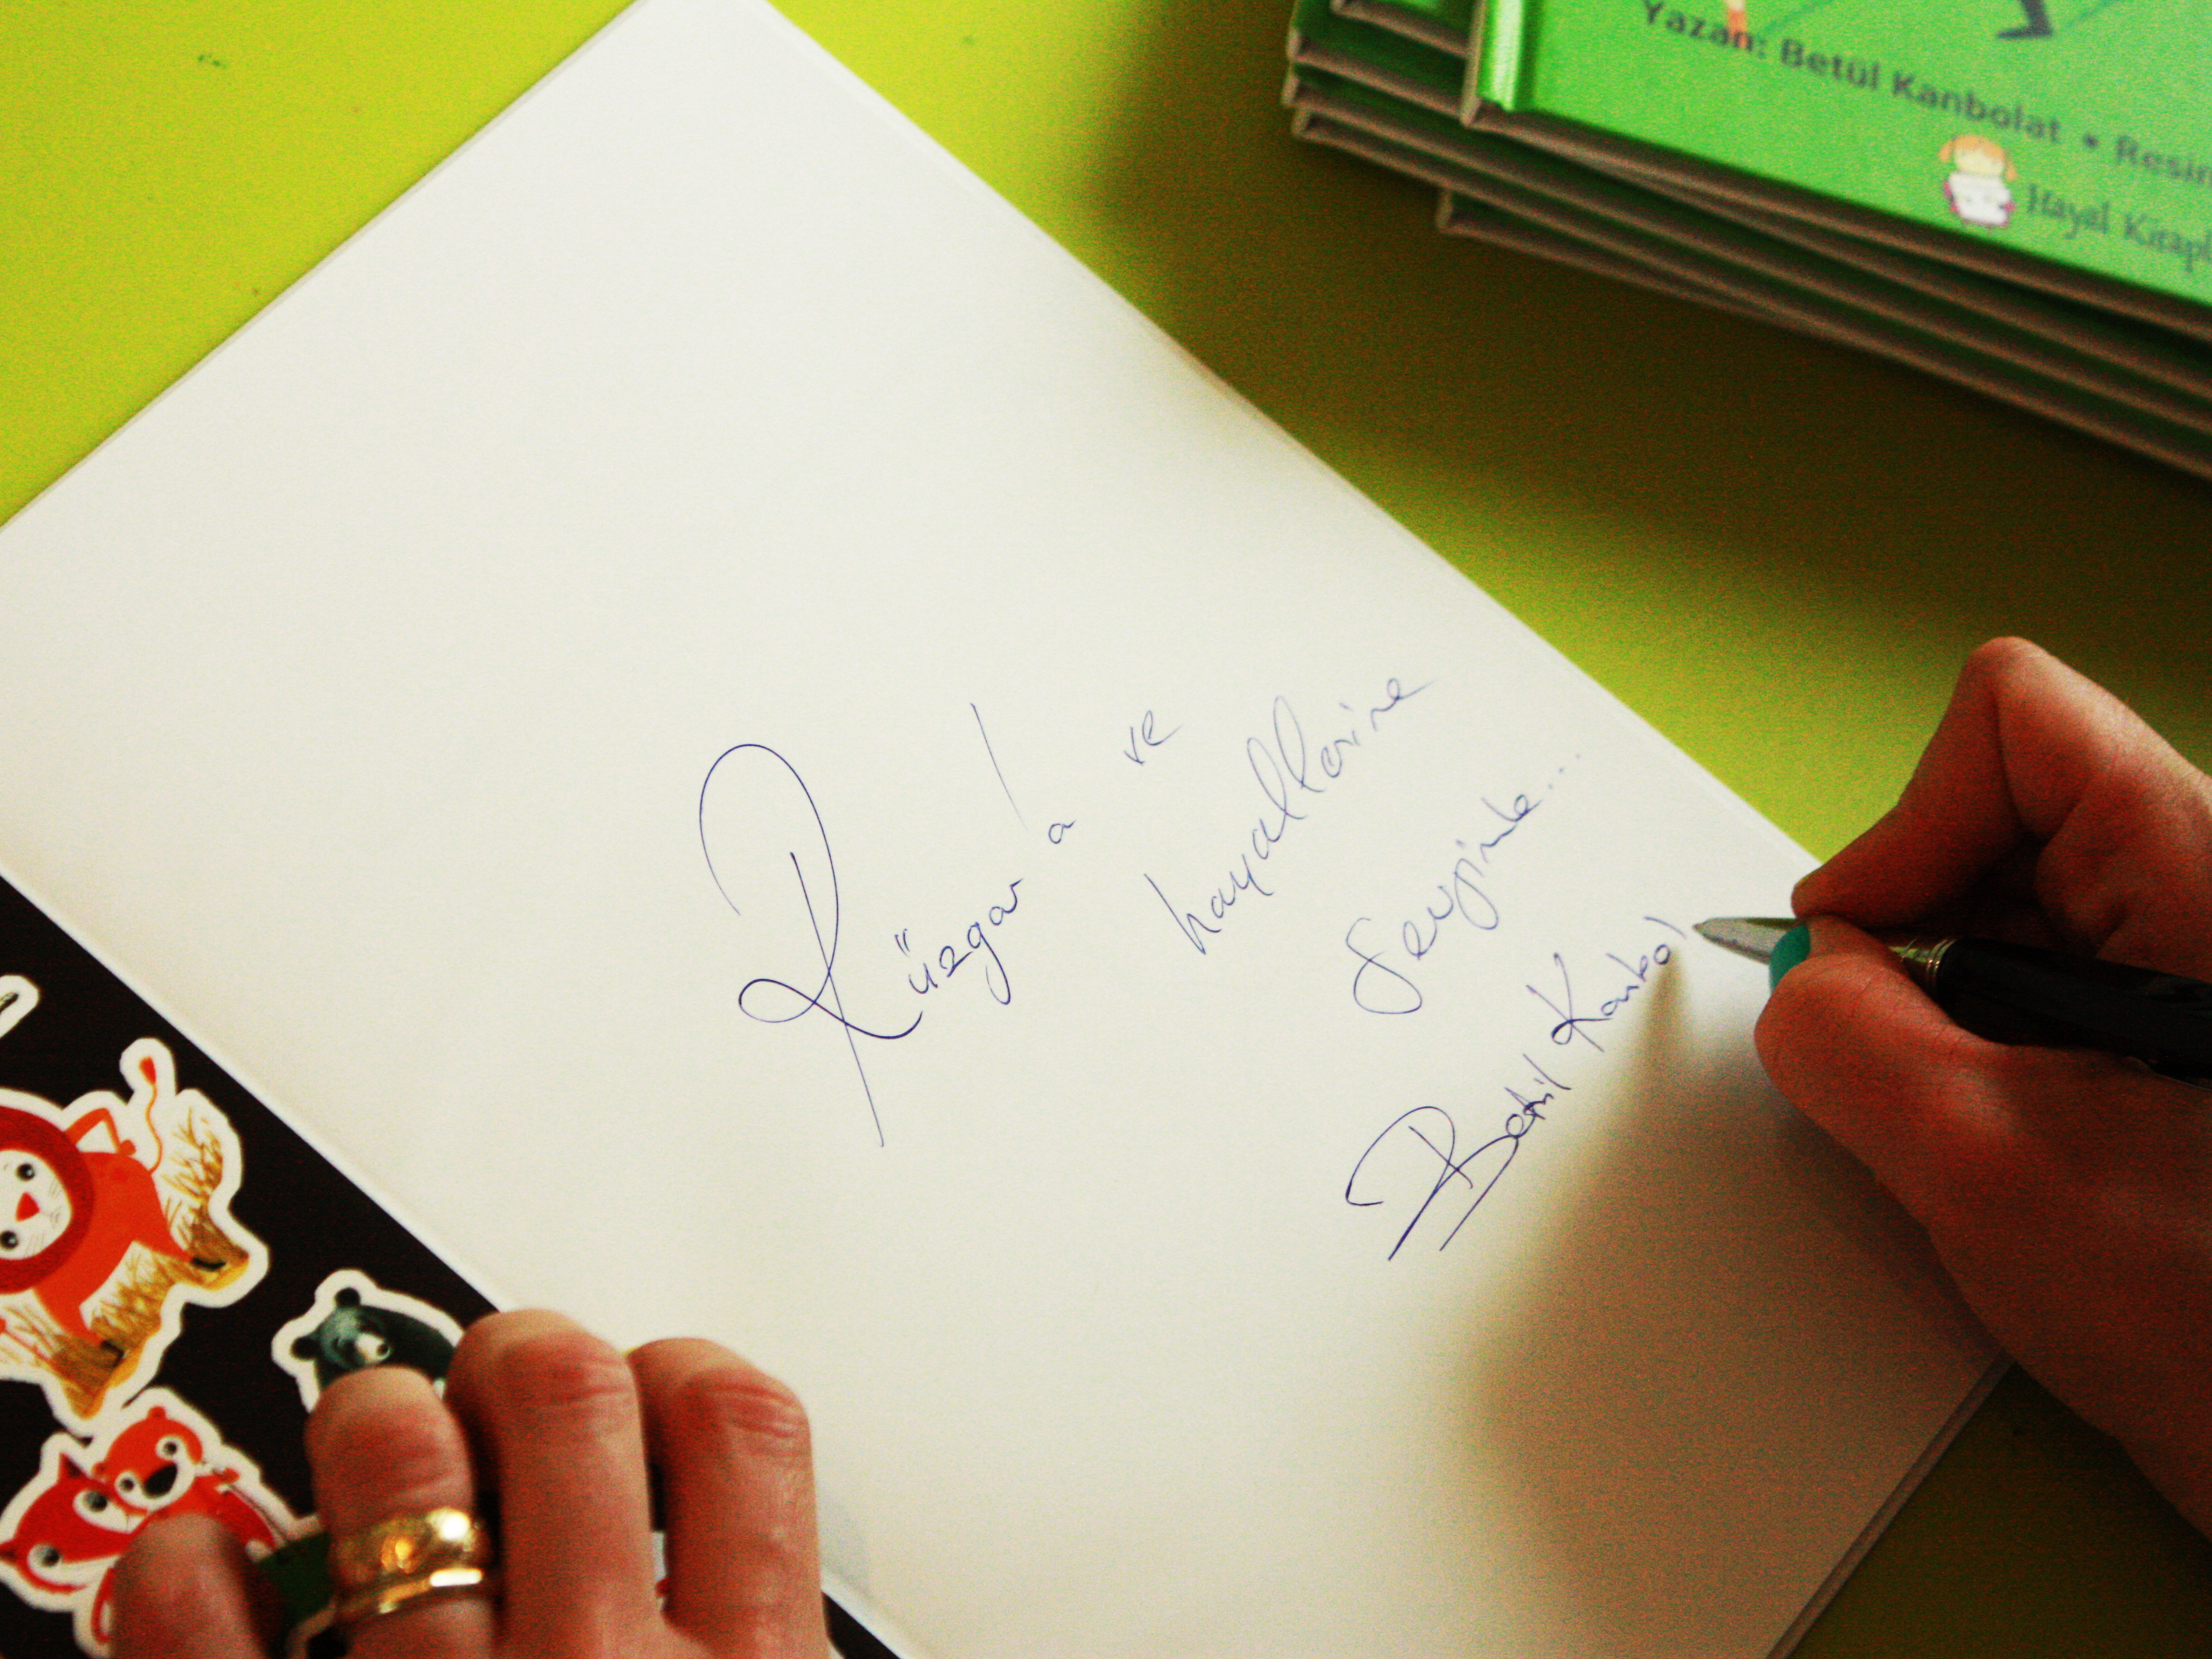 Yazan: Betül Kanbolat • Resim
Hayal Kitapl
Rüzgar'a ve
hayallerine
Sevgimle...
Betül Kanbol